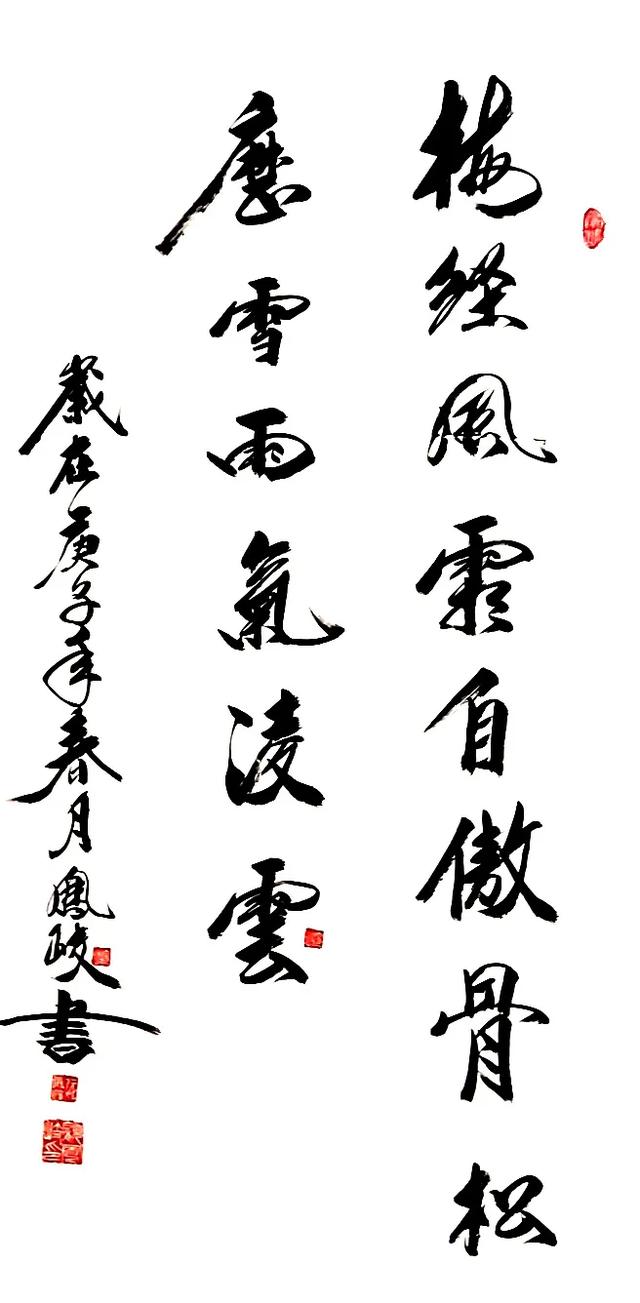 梅經風霜自傲骨松
歷雪雨氣凌雲
歲在庚子年春月鳳峻書